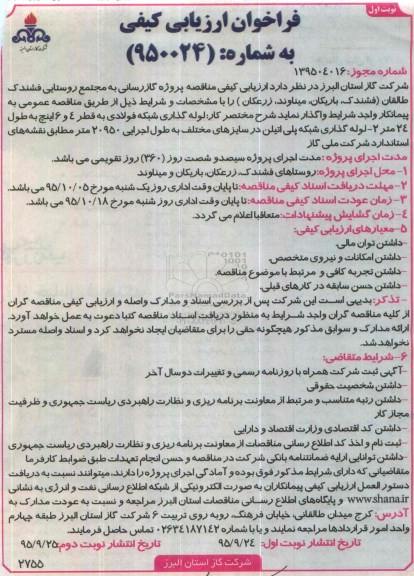 نوبت اول
فراخوان ارزیابی کیفی
به شماره: (950024)
شماره مجوز: 139504016
شرکت گاز استان البرز در نظر دارد ارزیابی کیفی مناقصه پروژه گازرسانی به مجتمع روستایی فشندک
طالقان (فشندک، باریکان، میناوند، زرعکان) را با مشخصات و شرایط ذیل از طریق مناقصه عمومی به
پیمانکار واجد شرایط واگذار نماید شرح مختصر کار: لوله گذاری شبکه فولادی به قطر 4 و 6 اینچ به طول
24 متر 2- لوله گذاری شبکه پلی اتیلن در سایزهای مختلف به طول اجرایی 20950 متر مطابق نقشه‌های
استاندارد شرکت ملی گاز
مدت اجرای پروژه: مدت اجرای پروژه سیصدو شصت روز (360) روز تقویمی می باشد.
1- محل اجرای پروژه: روستاهای فشندک، زرعکان، باریکان و میناوند
2- مهلت دریافت اسناد کیفی مناقصه: تا پایان وقت اداری روز یک شنبه مورخ 95/10/05 می باشد.
3- زمان عودت اسناد کیفی مناقصه: تا پایان وقت اداری روز شنبه مورخ 95/10/18 می باشد.
4- زمان گشایش پیشنهادات: متعاقبا اعلام می گردد.
5- معیارهای ارزیابی کیفی:
-داشتن توان مالی.
-داشتن امکانات و نیروی متخصص.
-داشتن تجربه کافی و مرتبط با موضوع مناقصه.
-داشتن حسن سابقه در کارهای قبلی.
-تذکر: بدیهی است این شرکت پس از بررسی اسناد و مدارک واصله و ارزیابی کیفی مناقصه گران
از کلیه مناقصه گران واجد شرایط به منظور دریافت اسناد مناقصه کتبا دعوت به عمل خواهد آورد.
ارائه مدارک و سوابق مذکور هیچگونه حقی را برای متقاضیان ایجاد نخواهد کرد و اسناد واصله مسترد
نخواهد شد.
6- شرایط متقاضی:
-آگهی ثبت شرکت همراه با روزنامه رسمی و تغییرات دو سال آخر
-داشتن شخصیت حقوقی
-داشتن رتبه متناسب و مرتبط از معاونت برنامه ریزی و نظارت راهبردی ریاست جمهوری و ظرفیت
مجاز کار
-داشتن کد اقتصادی وزارت اقتصاد و دارایی
-ثبت نام و اخذ کد اطلاع رسانی مناقصات از معاونت برنامه ریزی و نظارت راهبردی ریاست جمهوری
-داشتن توانایی ارایه ضمانتنامه بانکی شرکت در مناقصه و حسن انجام تعهدات طبق ضوابط کارفرما
متقاضیانی که دارای شرایط مذکور فوق بوده و آمادگی اجرای پروژه را دارند، میتوانند نسبت به دریافت
دستور العمل ارزیابی کیفی پیمانکاران به صورت الکترونیکی از شبکه اطلاع رسانی نفت و انرژی به نشانی
www.shana.ir و پایگاه‌های اطلاع رسانی مناقصات استان البرز مراجعه و نسبت به عودت مدارک به
آدرس: کرج میدان طالقانی، خیابان فرهنگ، روبه روی تربیت 6 شرکت گاز استان البرز طبقه چهارم
واحد امور قراردادها مراجعه نمایند و یا با شماره 02634187142 تماس حاصل فرمایند.
تاریخ انتشار نوبت اول: 95/9/24 تاریخ انتشار نوبت دوم: 95/9/25
شرکت گاز استان البرز
2755